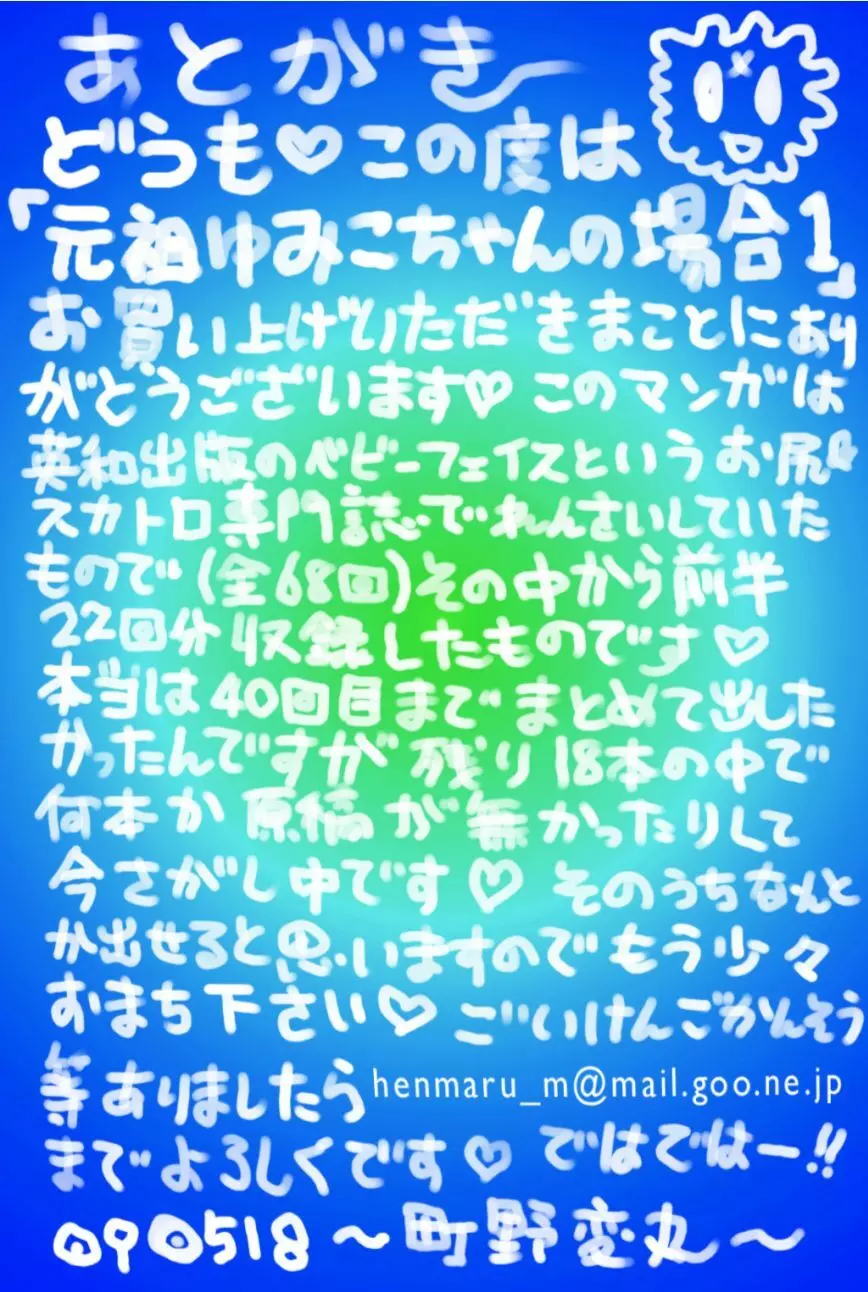 あとがき〜
どうも♡この度は
「元祖ゆみこちゃんの場合1」
お買い上げいただきまことにあり
がとうございます♡このマンガは
英和出版のベビーフェイスというお尻&
スカトロ専門誌でれんさいしていた
もので(全68回)その中から前半
22回分収録したものです♡
本当は40回目までまとめて出した
かったんですが残り18本の中で
何本か原稿が無かったりして
今さがし中です♡そのうちなんと
か出せると思いますのでもう少々
おまち下さい♡ごいけんごかんそう
等ありましたらhenmaru_m@mail.goo.ne.jp
までよろしくです♡ではではー!!
090518〜町野変丸〜